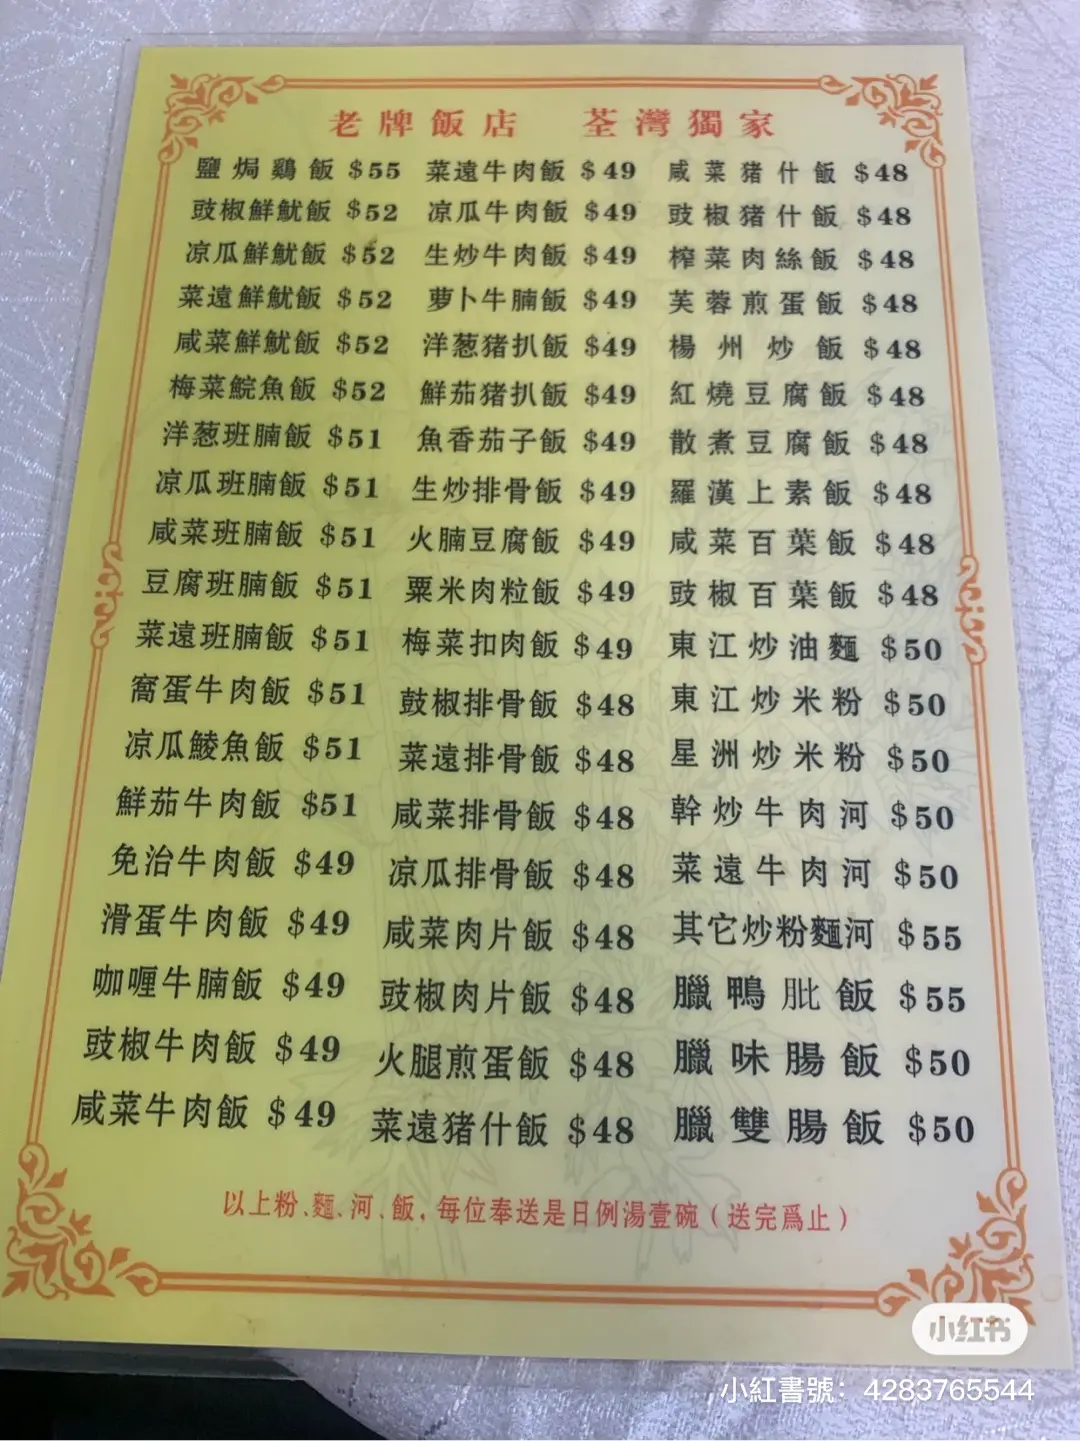 老牌飯店 荃灣獨家
鹽焗鷄飯 $55
豉椒鮮魷飯 $52
凉瓜鮮魷飯 $52
菜遠鮮魷飯 $52
咸菜鮮魷飯 $52
梅菜鯇魚飯 $52
洋葱班腩飯 $51
凉瓜班腩飯 $51
咸菜班腩飯 $51
豆腐班腩飯 $51
菜遠班腩飯 $51
窩蛋牛肉飯 $51
凉瓜鯪魚飯 $51
鮮茄牛肉飯 $51
免治牛肉飯 $49
滑蛋牛肉飯 $49
咖喱牛腩飯 $49
豉椒牛肉飯 $49
咸菜牛肉飯 $49
菜遠牛肉飯 $49
凉瓜牛肉飯 $49
生炒牛肉飯 $49
萝卜牛腩飯 $49
洋葱猪扒飯 $49
鮮茄猪扒飯 $49
魚香茄子飯 $49
生炒排骨飯 $49
火腩豆腐飯 $49
粟米肉粒飯 $49
梅菜扣肉飯 $49
鼓椒排骨飯 $48
菜遠排骨飯 $48
咸菜排骨飯 $48
凉瓜排骨飯 $48
咸菜肉片飯 $48
豉椒肉片飯 $48
火腿煎蛋飯 $48
菜遠猪什飯 $48
咸菜猪什飯 $48
豉椒猪什飯 $48
榨菜肉絲飯 $48
芙蓉煎蛋飯 $48
楊州炒飯 $48
紅燒豆腐飯 $48
散煮豆腐飯 $48
羅漢上素飯 $48
咸菜百葉飯 $48
豉椒百葉飯 $48
東江炒油麵 $50
東江炒米粉 $50
星洲炒米粉 $50
幹炒牛肉河 $50
菜遠牛肉河 $50
其它炒粉麵河 $55
臘鴨肶飯 $55
臘味腸飯 $50
臘雙腸飯 $50
以上粉、麵、河、飯，每位奉送是日例湯壹碗（送完爲止）
小红书
小紅書號：4283765544